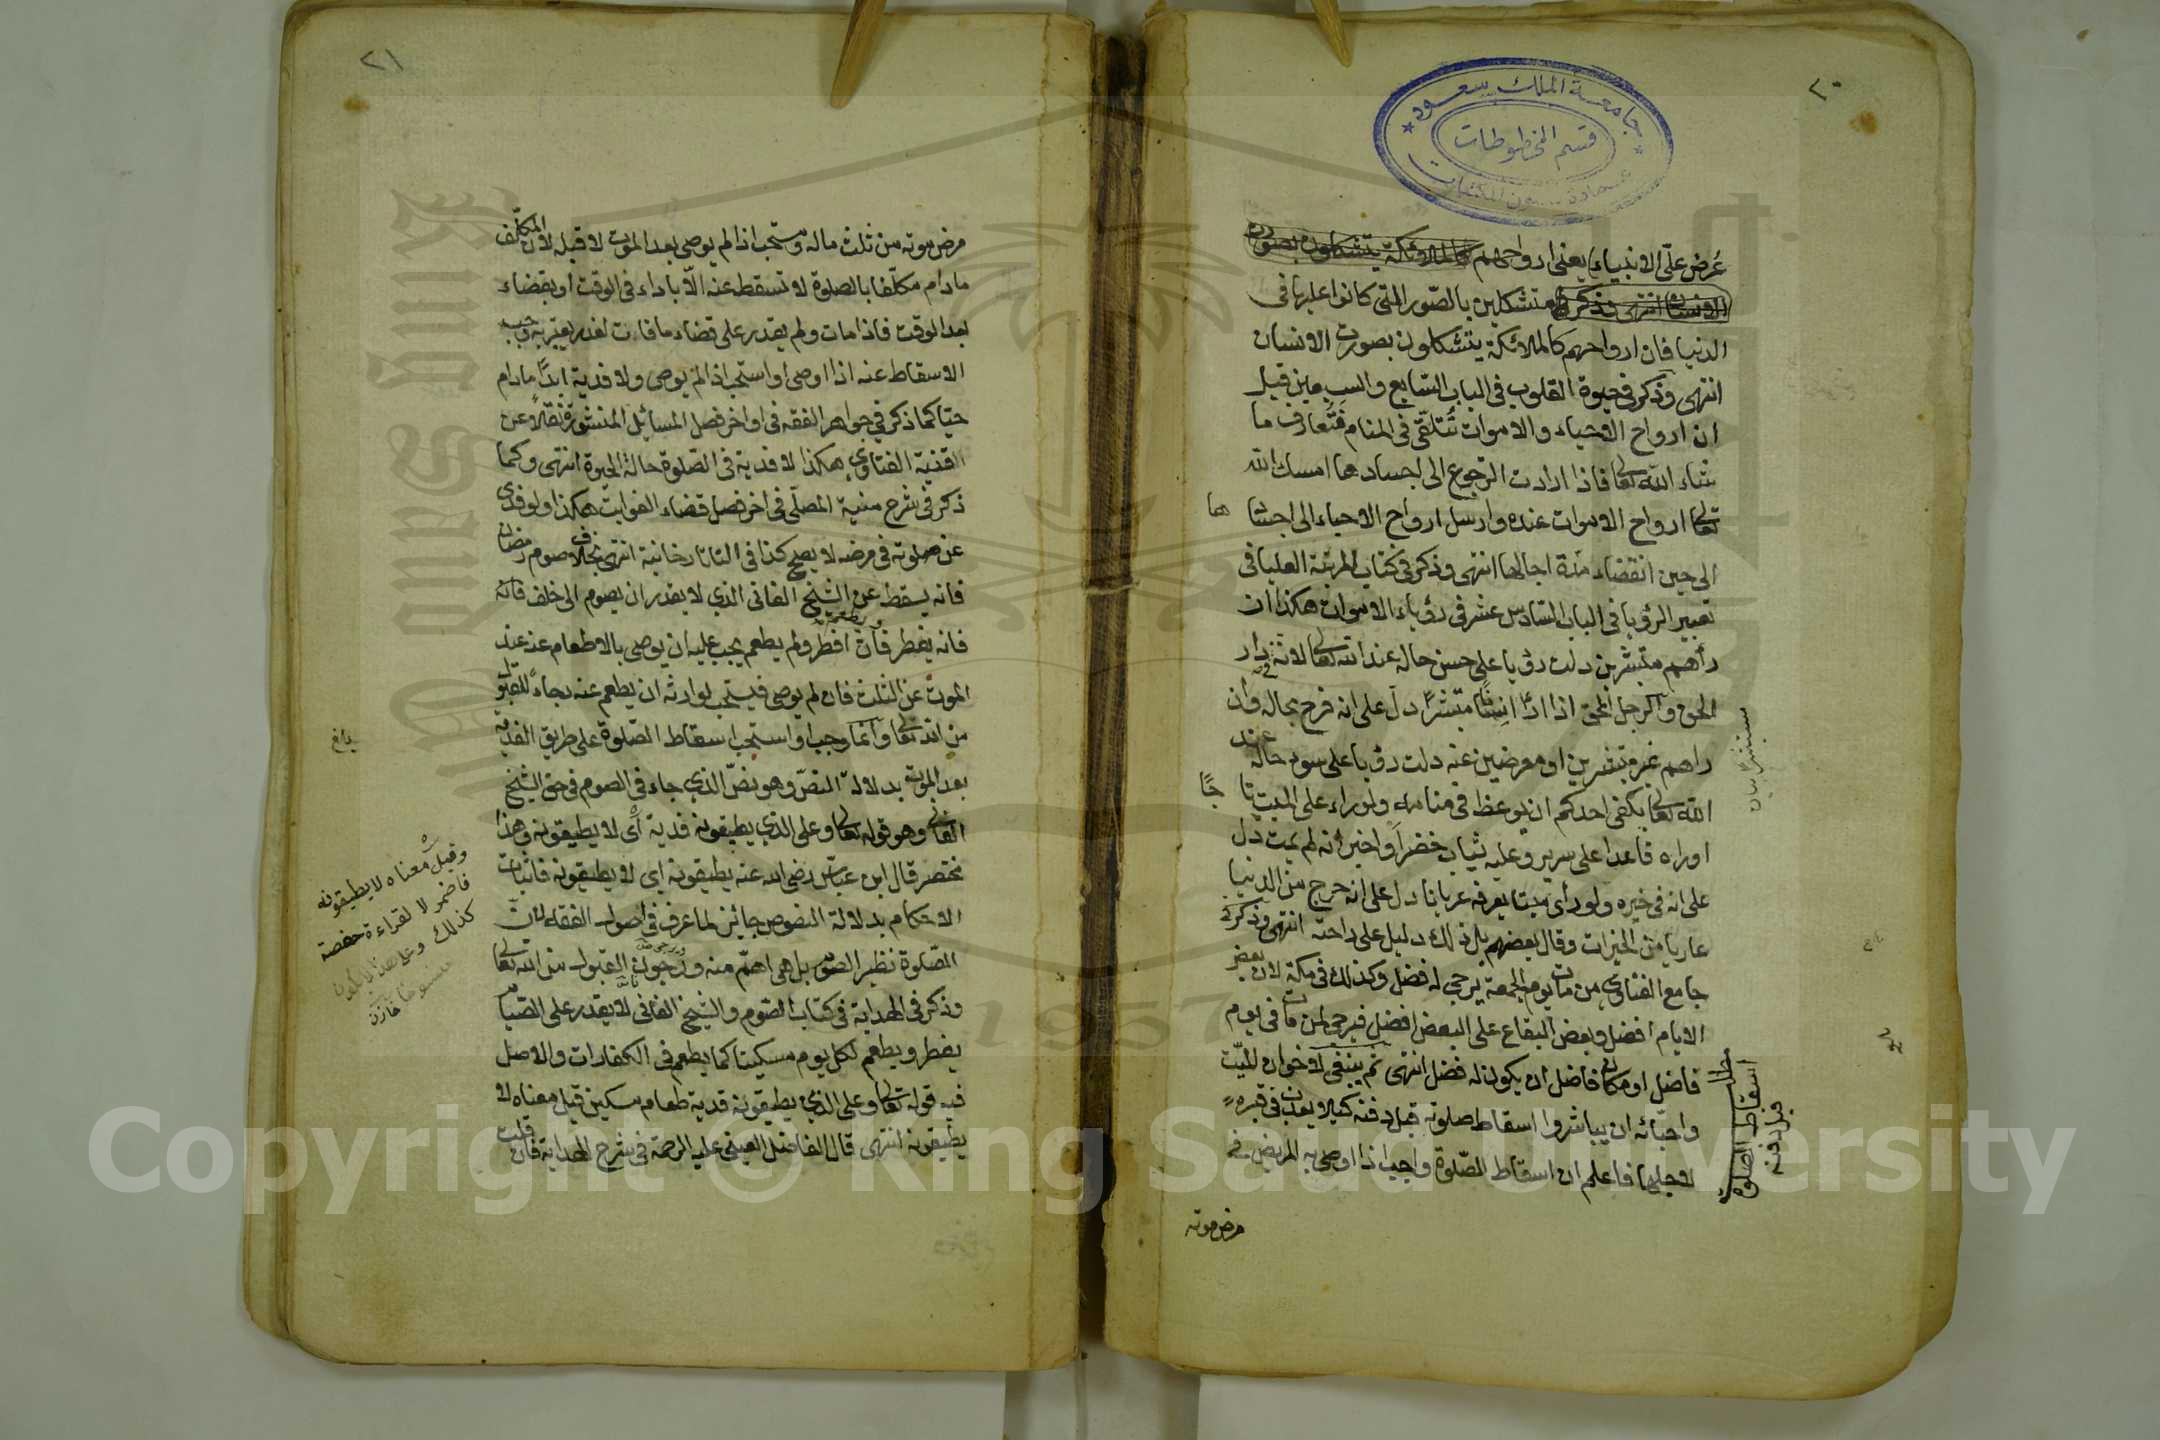 ٢٠
جامعة الملك سعود
قسم المخطوطات
عمادة شئون المكتبات
عُرض علىّ الانبياء يعنى ارواحهم كالملائكة يتشكلون بصورت
الانسان انتهى وذكر فى متشكلين بالصّور التى كانوا عليها فى
الدنيا فان ارواحهم كالملائكة يتشكلون بصورت الانسان
انتهى وذكر فى حيوة القلوب فى الباب السّابع والسبعين قيل
ان ارواح الاحياء والاموات تُتلقّى فى المنام فتتعارف ما
شاء الله تعالى فاذا ارادت الرّجوع الى اجسادها امسك الله
تعالى ارواح الاموات عنده وارسل ارواح الاحياء الى اجسا
دها
الى حين انقضاء مدّة اجالها انتهى وذكر فى كتاب المرتبة العليا فى
تعبير الرؤيا فى الباب السّادس عشر فى رؤياء الاموات هكذا ان
رأهم مبتشرين دلت رؤيا على حسن حاله عند الله تعالى لانه فى دار
الحق والرجل المحق اذا انسانًا مبتشرًا دلّ على انه فرح بحاله وان
راهم غير مبتشرين او معرضين عنه دلت رؤيا على سوء حاله عند
الله تعالى يكفى احدكم ان يوعظ فى منامه ولو راء على الميت
اوراه قاعدا على سرير وعليه ثياب خضرًا واخبر انه لم يمت دل
على انه فى خيره ولو رأى ميتا يعرفه عريانا دل على انه خرج من الدنيا
عاريا من الخيرات وقال بعضهم بل ذلك دليل على راحته انتهى وذكر فى
جامع الفتاوى من مات يوم الجمعة يرجى له فضل وكذلك فى مكة لان بعض
الايام افضل وبعض البقاع على البعض افضل فيرجى لمن مات فى يوم
فاضل او مكان فاضل ان يكون له فضل انتهى ثم ينبغى لاخوان الميّت
واحبّائه ان يباشروا اسقاط صلوته قبل دفنه كيلا يعذب فى قبره
لاجلها فاعلم ان اسقاط الصّلوة واجب اذا اوصى به المريض فى
مطلب
اسقاط الصلوة
قبل دفنه
مرض موته
٢١
مرض موته من ثلث ماله ومستحب اذا لم يوصى بعد الموت لا قبله لان المكلّف
مادام مكلّفا بالصلوة لا تسقط عنه الّا باداء فى الوقت او بقضاء
بعد الوقت فاذا مات ولم يقدر على قضاء ما فات لعذر يعتبر به وجب
الاسقاط عنه اذا اوصى او استحب اذا لم يوصى ولا فدية ابدًا مادام
حيّا كما ذكر فى جواهر الفقه فى اواخر فصل المسائل المنثورة نقلاً عن
القنية الفتاوى هكذا لا فدية فى الصّلوة حالة الحيوة انتهى وكما
ذكر فى شرح منية المصلّى فى اخر فصل قضاء الفوايت هكذا ولو فدى
عن صلوته فى مرضه لا يصح كذا فى التاتارخانية انتهى بخلاف صوم رمضان
فانه يسقط عن الشيخ الفانى الذى لا يقدر ان يصوم الى خلف فانه
فانه يفطر فان افطر ولم يطعم يجب عليه ان يوصى بالاطعام عنه عند
الموت عن الثلث فان لم يوصى فيستحب لوارثه ان يطعم عنه رجاءً للقبول
من الله تعالى وانما وجب او استحب اسقاط الصّلوة على طريق الفدية
بعد الموت بدلالة النصّ وهو نصّ الذى جاء فى الصوم فى حق الشيخ
الفانى وهو قوله تعالى وعلى الذى يطيقونه فدية اى لا يطيقونه وهذا
مختصر قال ابن عباس رضى الله عنه يطيقونه اى لا يطيقونه فاثبات
الاحكام بدلالة النصوص جائز لما عرف فى اصول الفقه لان
الصّلوة نظير الصّوم بل هى اهمّ منه ورجون القبول من الله تعالى
وذكر فى الهداية فى كتاب الصّوم والشيخ الفانى لا يقدر على الصّيام
يفطر ويطعم لكل يوم مسكينا كما يطعم فى الكفارات والاصل
فيه قوله تعالى وعلى الذى يطيقونه فدية طعام مسكين قيل معناه لا
يطيقونه انتهى قال الفاضل العينى عليه الرحمة فى شرح الهداية فان قلت
وقيل معناه لا يطيقونه
فاضمر لا لقراءة حفصة
كذلك وعلى هذا لا يكون
منسوخا
Copyright © King Saud University
King Saud University
1957